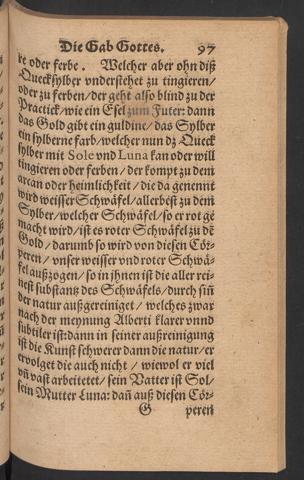 Die Gab Gottes. 97
re oder ferbe. Welcher aber ohn diß
Queckſylber vnderſtehet zu tingieren/
oder zu ferben/ der geht alſo blind zu der
Practick/ wie ein Eſel zum Futer: dann
das Gold gibt ein guldine/ das Sylber
ein ſylberne farb/ welcher nun dz Queck
ſylber mit Sole vnd Luna kan oder will
tingieren oder ferben/ der kompt zu dem
arcan oder heimlichkeit/ die da genennt
wird weiſſer Schwäfel/ allerbeſt zu dem
Sylber/ welcher Schwäfel/ ſo er rot ge
macht wird/ iſt es roter Schwäfel zu dẽ
Gold/ darumb ſo wird von dieſen Cör-
peren/ vnſer weiſſer vnd roter Schwä-
fel außzogen/ ſo in jhnen iſt die aller rei-
neſt ſubſtantz des Schwäfels/ durch ſiñ
der natur außgereiniget/ welches zwar
nach der meynung Alberti klarer vnnd
ſubtiler iſt: dann in ſeiner außreinigung
iſt die Kunſt ſchwerer dann die natur/ er
ervolget die auch nicht/ wiewol er viel
vñ vaſt arbeitetet/ ſein Vatter iſt Sol/
ſein Mutter Luna: dañ auß dieſen Cör-
G peren